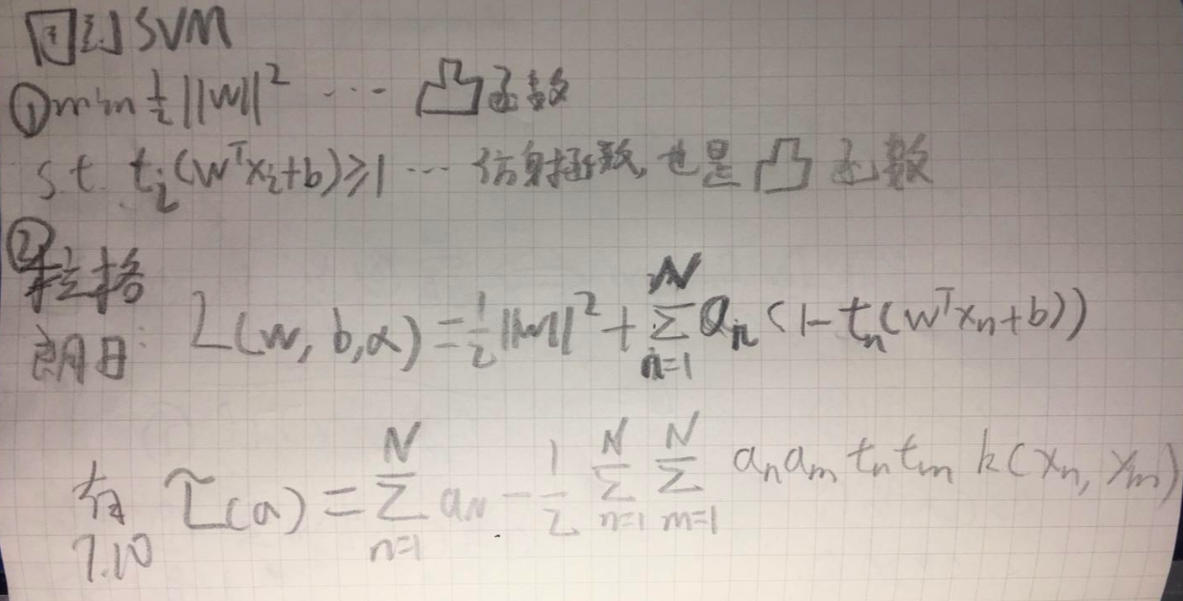 回到SVM
① min ½||w||² … 凸函数
s.t. tᵢ(wᵀxᵢ+b)≥1 … 仿射函数, 也是凸函数
② 拉格
朗日: L(w, b, α) = ½||w||² + Σₙ₌₁ᴺ aₙ(1-tₙ(wᵀxₙ+b))
有 L̃(a) = Σₙ₌₁ᴺ aₙ - ½ Σₙ₌₁ᴺ Σₘ₌₁ᴺ aₙaₘtₙtₘk(xₙ, xₘ)
7.10